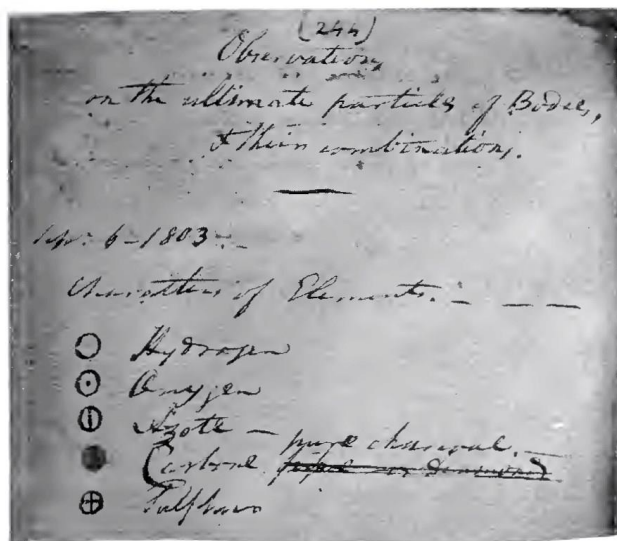 (244)
Observations
on the ultimate particles of Bodies,
& their combinations.
Sep: 6 - 1803 :-
Characters of Elements. - - -
Hydrogen
Oxygen
Azote
Carbone, - pure charcoal. -
Sulphur